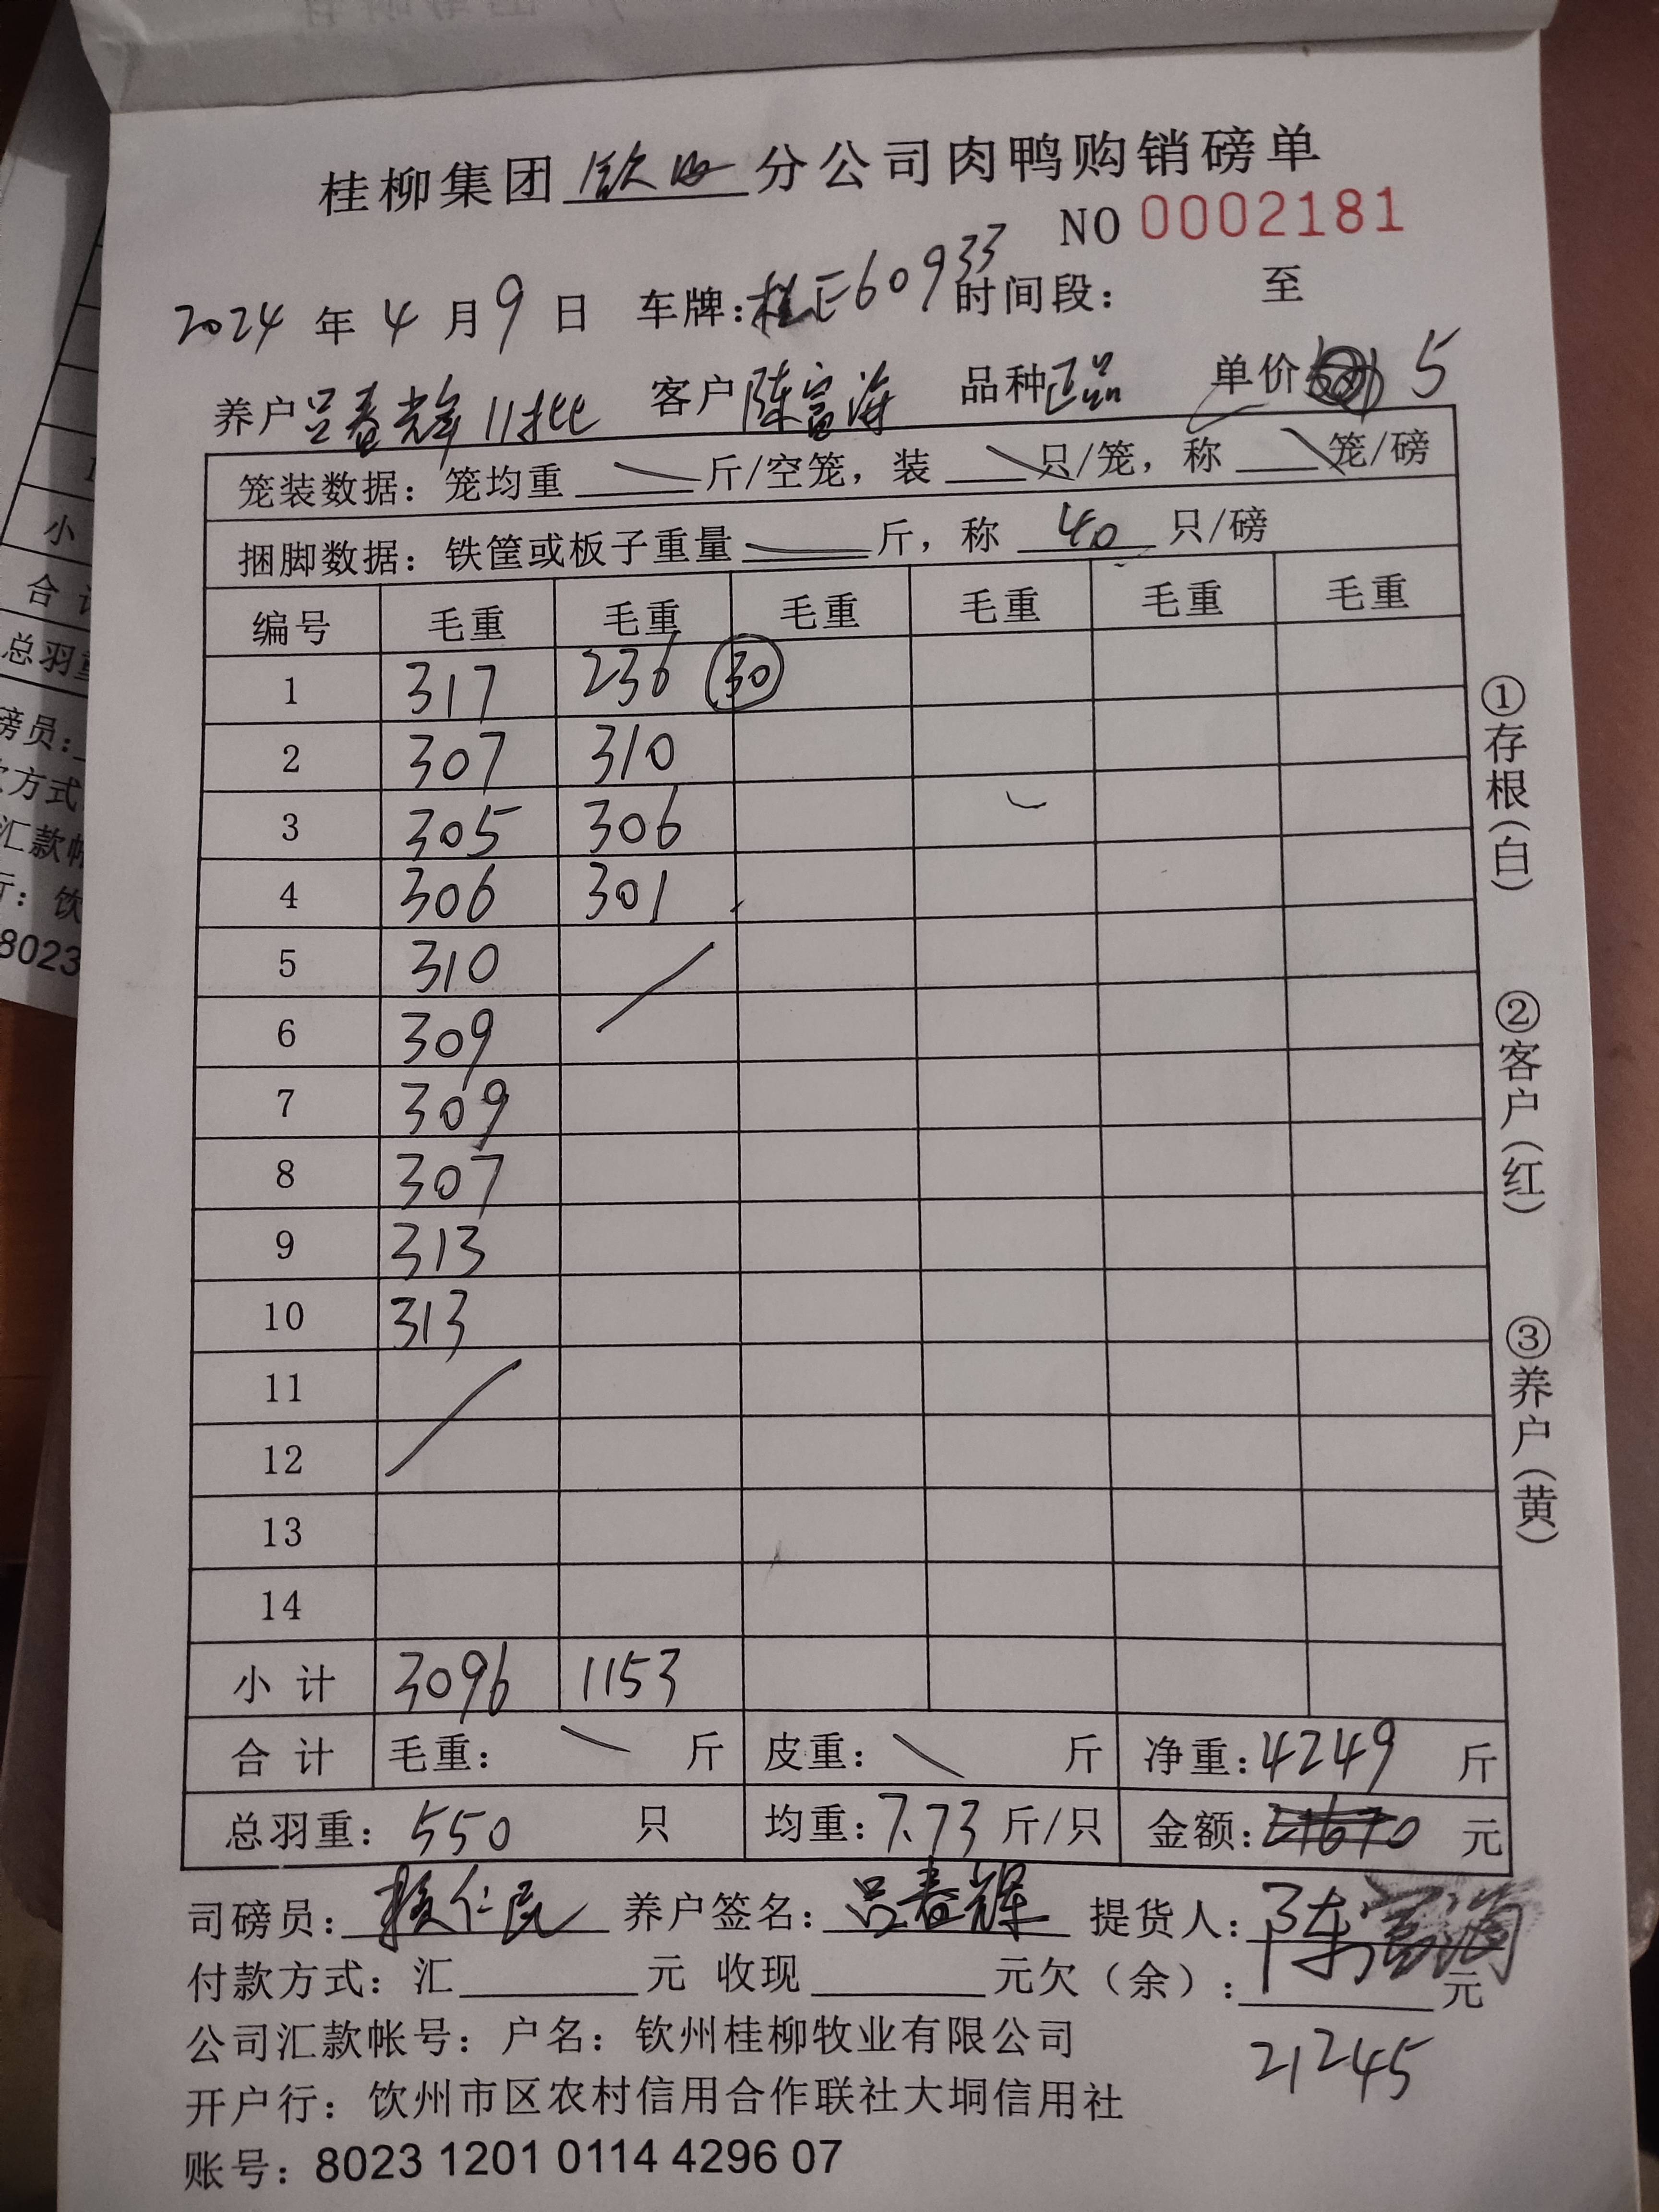 桂柳集团 钦州 分公司肉鸭购销磅单
NO 0002181
2024 年 4 月 9 日 车牌:桂E60933 时间段: 至
养户 吕春辉 11批 客户 陈富海 品种 正品 单价 5
笼装数据: 笼均重 斤/空笼, 装 只/笼, 称 笼/磅
捆脚数据: 铁筐或板子重量 斤, 称 40 只/磅
编号 毛重 毛重 毛重 毛重 毛重 毛重
1 317 236 30
2 307 310
3 305 306
4 306 301
5 310
6 309
7 309
8 307
9 313
10 313
11
12
13
14
小计 3096 1153
合计 毛重: 斤 皮重: 斤 净重: 4249 斤
总羽重: 550 只 均重: 7.73 斤/只 金额: 21670 元
司磅员: 仁民 养户签名: 吕春辉 提货人: 陈富海
付款方式: 汇 元 收现 元 欠(余): 元
21245
公司汇款帐号: 户名: 钦州桂柳牧业有限公司
开户行: 钦州市区农村信用合作联社大垌信用社
账号: 8023 1201 0114 4296 07
①存根(白)
②客户(红)
③养户(黄)
小
合
总羽
磅员:
方式
汇款帐
行: 饮
8023